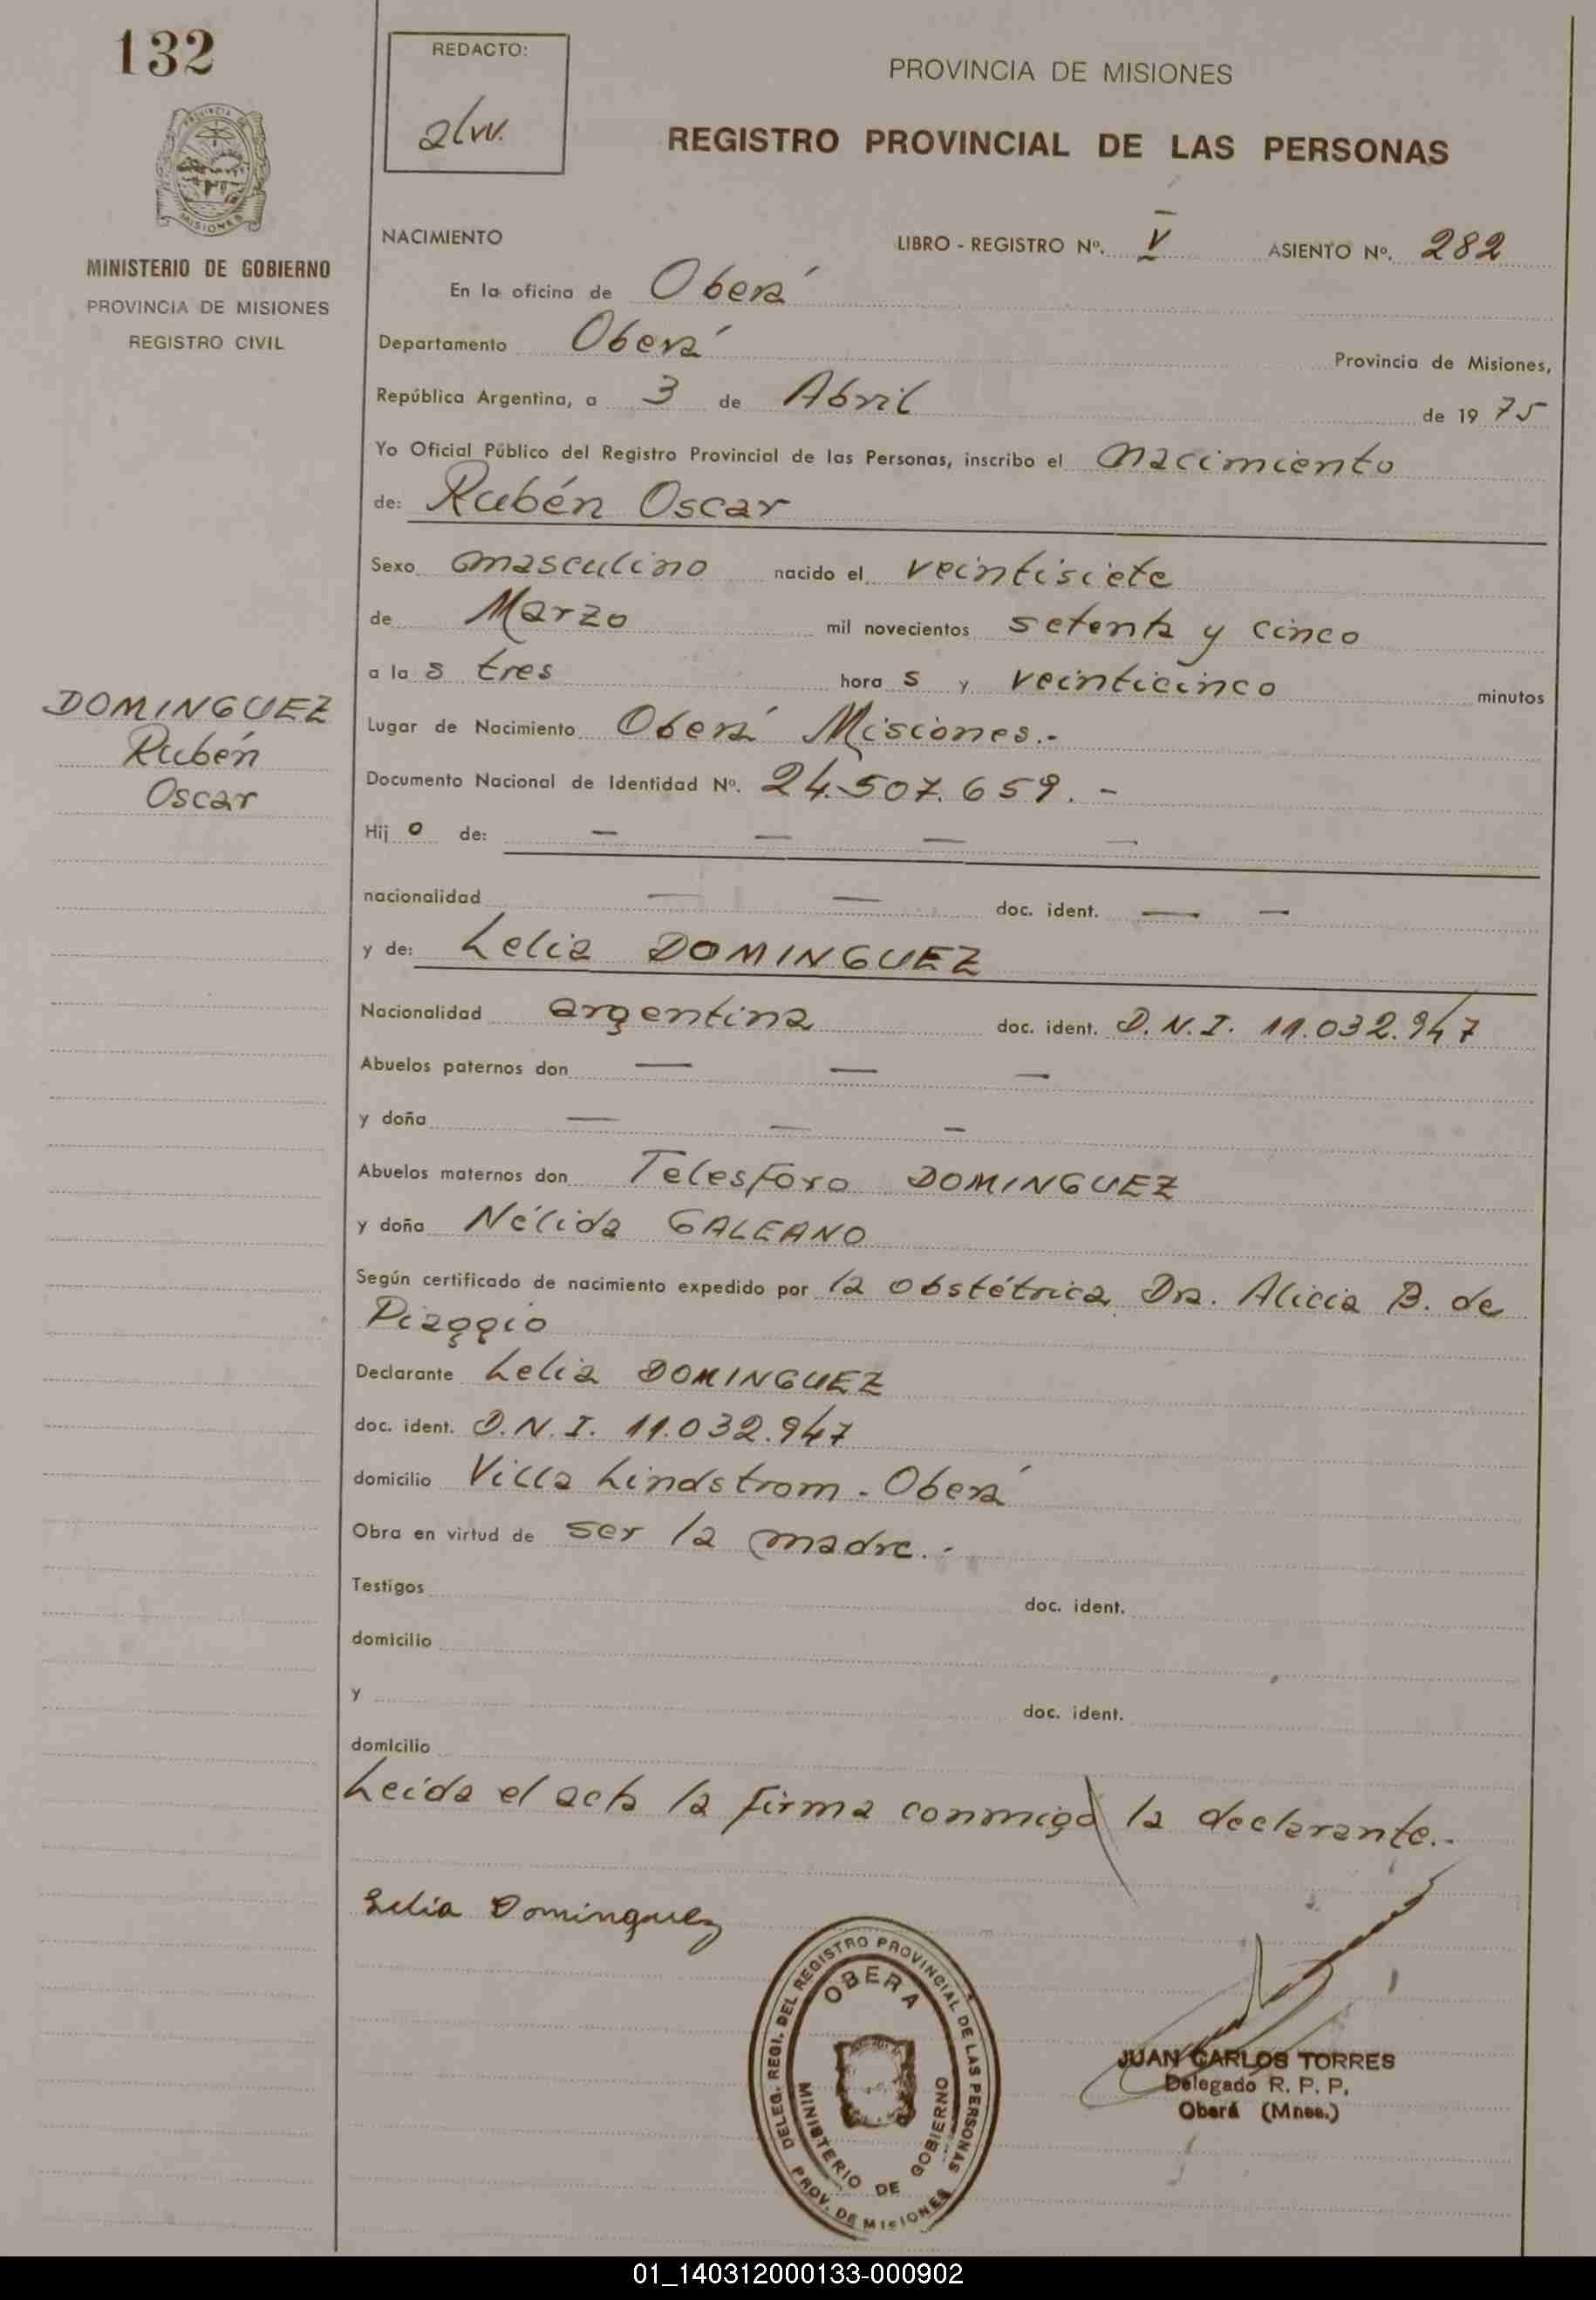 132
REDACTO:
alw.
PROVINCIA DE MISIONES
REGISTRO PROVINCIAL DE LAS PERSONAS
PROVINCIA DE
MISIONES
MINISTERIO DE GOBIERNO
PROVINCIA DE MISIONES
REGISTRO CIVIL
NACIMIENTO
LIBRO - REGISTRO Nº. V ASIENTO Nº. 282
En la oficina de Oberá
Departamento Oberá Provincia de Misiones,
República Argentina, a 3 de Abril de 19 75
Yo Oficial Público del Registro Provincial de las Personas, inscribo el nacimiento
de: Rubén Oscar
Sexo masculino nacido el veintisiete
de Marzo mil novecientos setenta y cinco
a la s tres hora s y veinticinco minutos
DOMINGUEZ
Rubén
Oscar
Lugar de Nacimiento Oberá Misiones.-
Documento Nacional de Identidad Nº. 24.507.659.-
Hij o de: — — — —
nacionalidad — — doc. ident. — —
y de: Lelia DOMINGUEZ
Nacionalidad argentina doc. ident. D.N.I. 11.032.947
Abuelos paternos don — — —
y doña — — —
Abuelos maternos don Telesforo DOMINGUEZ
y doña Nélida GALEANO
Según certificado de nacimiento expedido por la obstétrica Dra. Alicia B. de
Piaggio
Declarante Lelia DOMINGUEZ
doc. ident. D.N.I. 11.032.947
domicilio Villa Lindstrom - Oberá
Obra en virtud de ser la madre.-
Testigos doc. ident.
domicilio
y doc. ident.
domicilio
Leida el acta la firma conmigo la declarante.-
Lelia Dominguez
DELEG. REGI. DEL REGISTRO PROVINCIAL DE LAS PERSONAS
PROV. DE MISIONES
OBERA
MINISTERIO DE GOBIERNO
JUAN CARLOS TORRES
Delegado R. P. P.
Oberá (Mnes.)
01_140312000133-000902